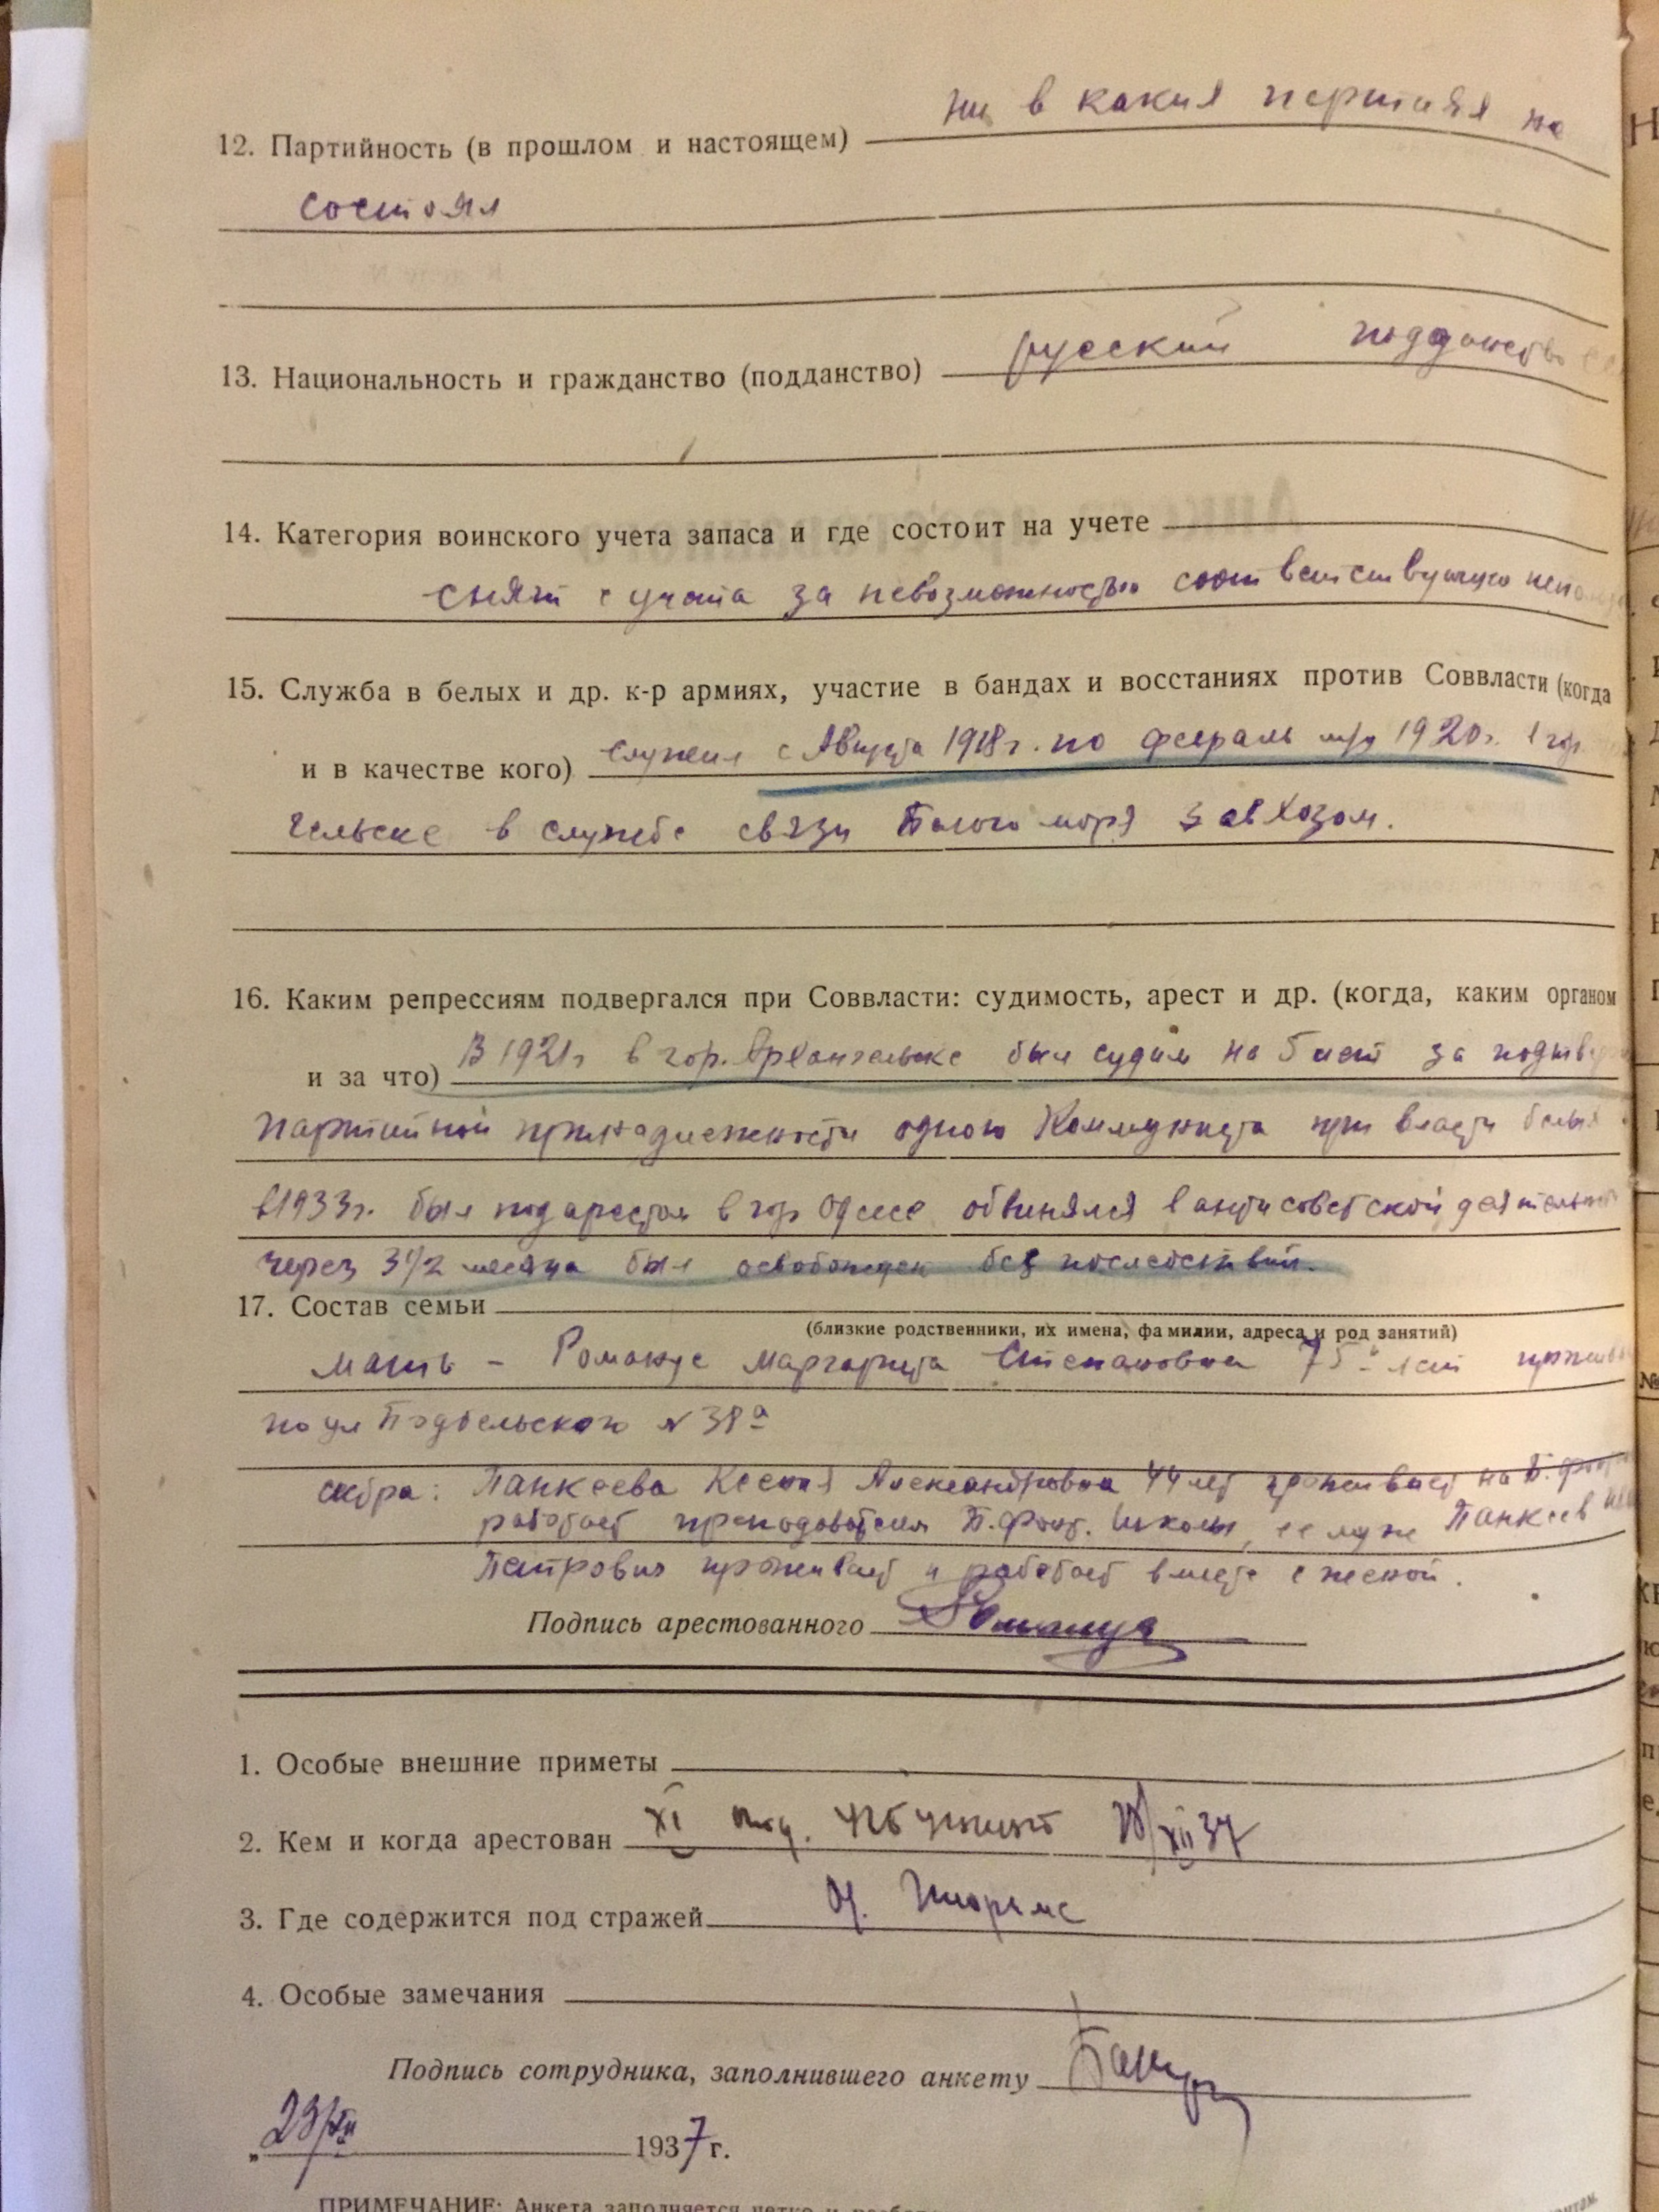 ни в каких партиях не
12. Партийность (в прошлом и настоящем)
состоял
русский подданство
13. Национальность и гражданство (подданство)
14. Категория воинского учета запаса и где состоит на учете
снят с учета за невозможностью соответствующего
15. Служба в белых и др. к-р армиях, участие в бандах и восстаниях против Соввласти (когда
и в качестве кого) служил с Августа 1918 г. по февраль 1920 г. в гор.
гельске в службе связи Белого моря завхозом.
16. Каким репрессиям подвергался при Соввласти: судимость, арест и др. (когда, каким органом
и за что) В 1921 г в гор. Архангельске был судим на 5 лет за
партийной принадлежности одного Коммуниста при власти белых
в 1933 г. был под арестом в гор Одессе обвинялся в антисоветской
через 3 1/2 месяца был освобожден без последствий.
17. Состав семьи
(близкие родственники, их имена, фамилии, адреса и род занятий)
мать - Романус Маргарита Степановна 75 лет
по ул Подбельского N 38а
сестра: Панкеева Ксения Александровна 44 лет проживает на Б.
работает преподавателем Б. Фонт. школы, ее муж Панкеев
Петрович проживает и работает вместе с женой.
Подпись арестованного Романус
1. Особые внешние приметы
2. Кем и когда арестован XI УГБ УНКВД XII 37
3. Где содержится под стражей О. Тюрьме
4. Особые замечания
Подпись сотрудника, заполнившего анкету
„ 23/XII 1937 г.
ПРИМЕЧАНИЕ: Анкета заполняется четко и